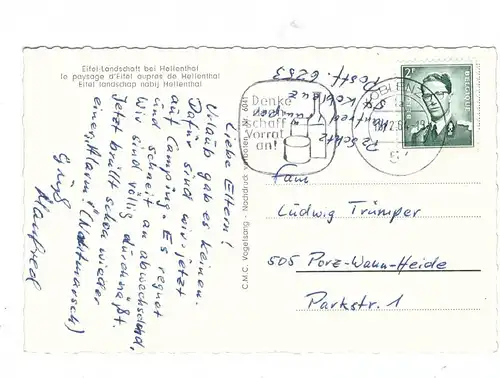 Eifel-Landschaft bei Hellenthal
le paysage d'Eifel aupres de Hellenthal
Eifel landschap nabij Hellenthal
Liebe Eltern!
Urlaub gab es keinen.
Dafür sind wir jetzt
auf Camping. Es regnet
und schneit an abwechselnd,
Wir sind völlig durchnäßt.
Jetzt brüllt schon wieder
einer „Alarm". (Nachtmarsch)
Gruß
Manfred
C.M.C. Vogelsang - Nachdruck verboten - Nr. 6041
Manfred Trümper
54 Koblenz
Postf. 6253
Denke
schaff
Vorrat
an!
KOBLENZ
2F
BELGIE
BELGIQUE
Fam
Ludwig Trümper
505 Porz-Wann-Heide
Parkstr. 1